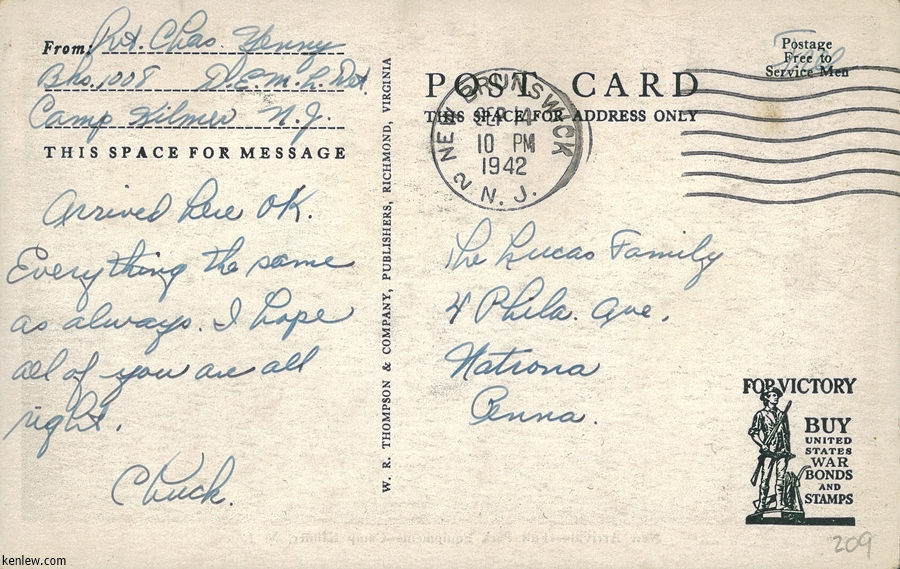 From: Pvt. Chas. Yenny
Bks. 1008 D.E.M.L. Det.
Camp Kilmer N.J.
THIS SPACE FOR MESSAGE
Arrived here OK.
Everything the same
as always. I hope
all of you are all
right.
Chuck.
W. R. THOMPSON & COMPANY, PUBLISHERS, RICHMOND, VIRGINIA
Postage
Free to
Service Men
Free
POST CARD
THIS SPACE FOR ADDRESS ONLY
NEW BRUNSWICK
SEP 14
10 PM
1942
2 N. J.
The Lucas Family
4 Phila. Ave.
Natrona
Penna.
FOR VICTORY
BUY
UNITED
STATES
WAR
BONDS
AND
STAMPS
209
kenlew.com